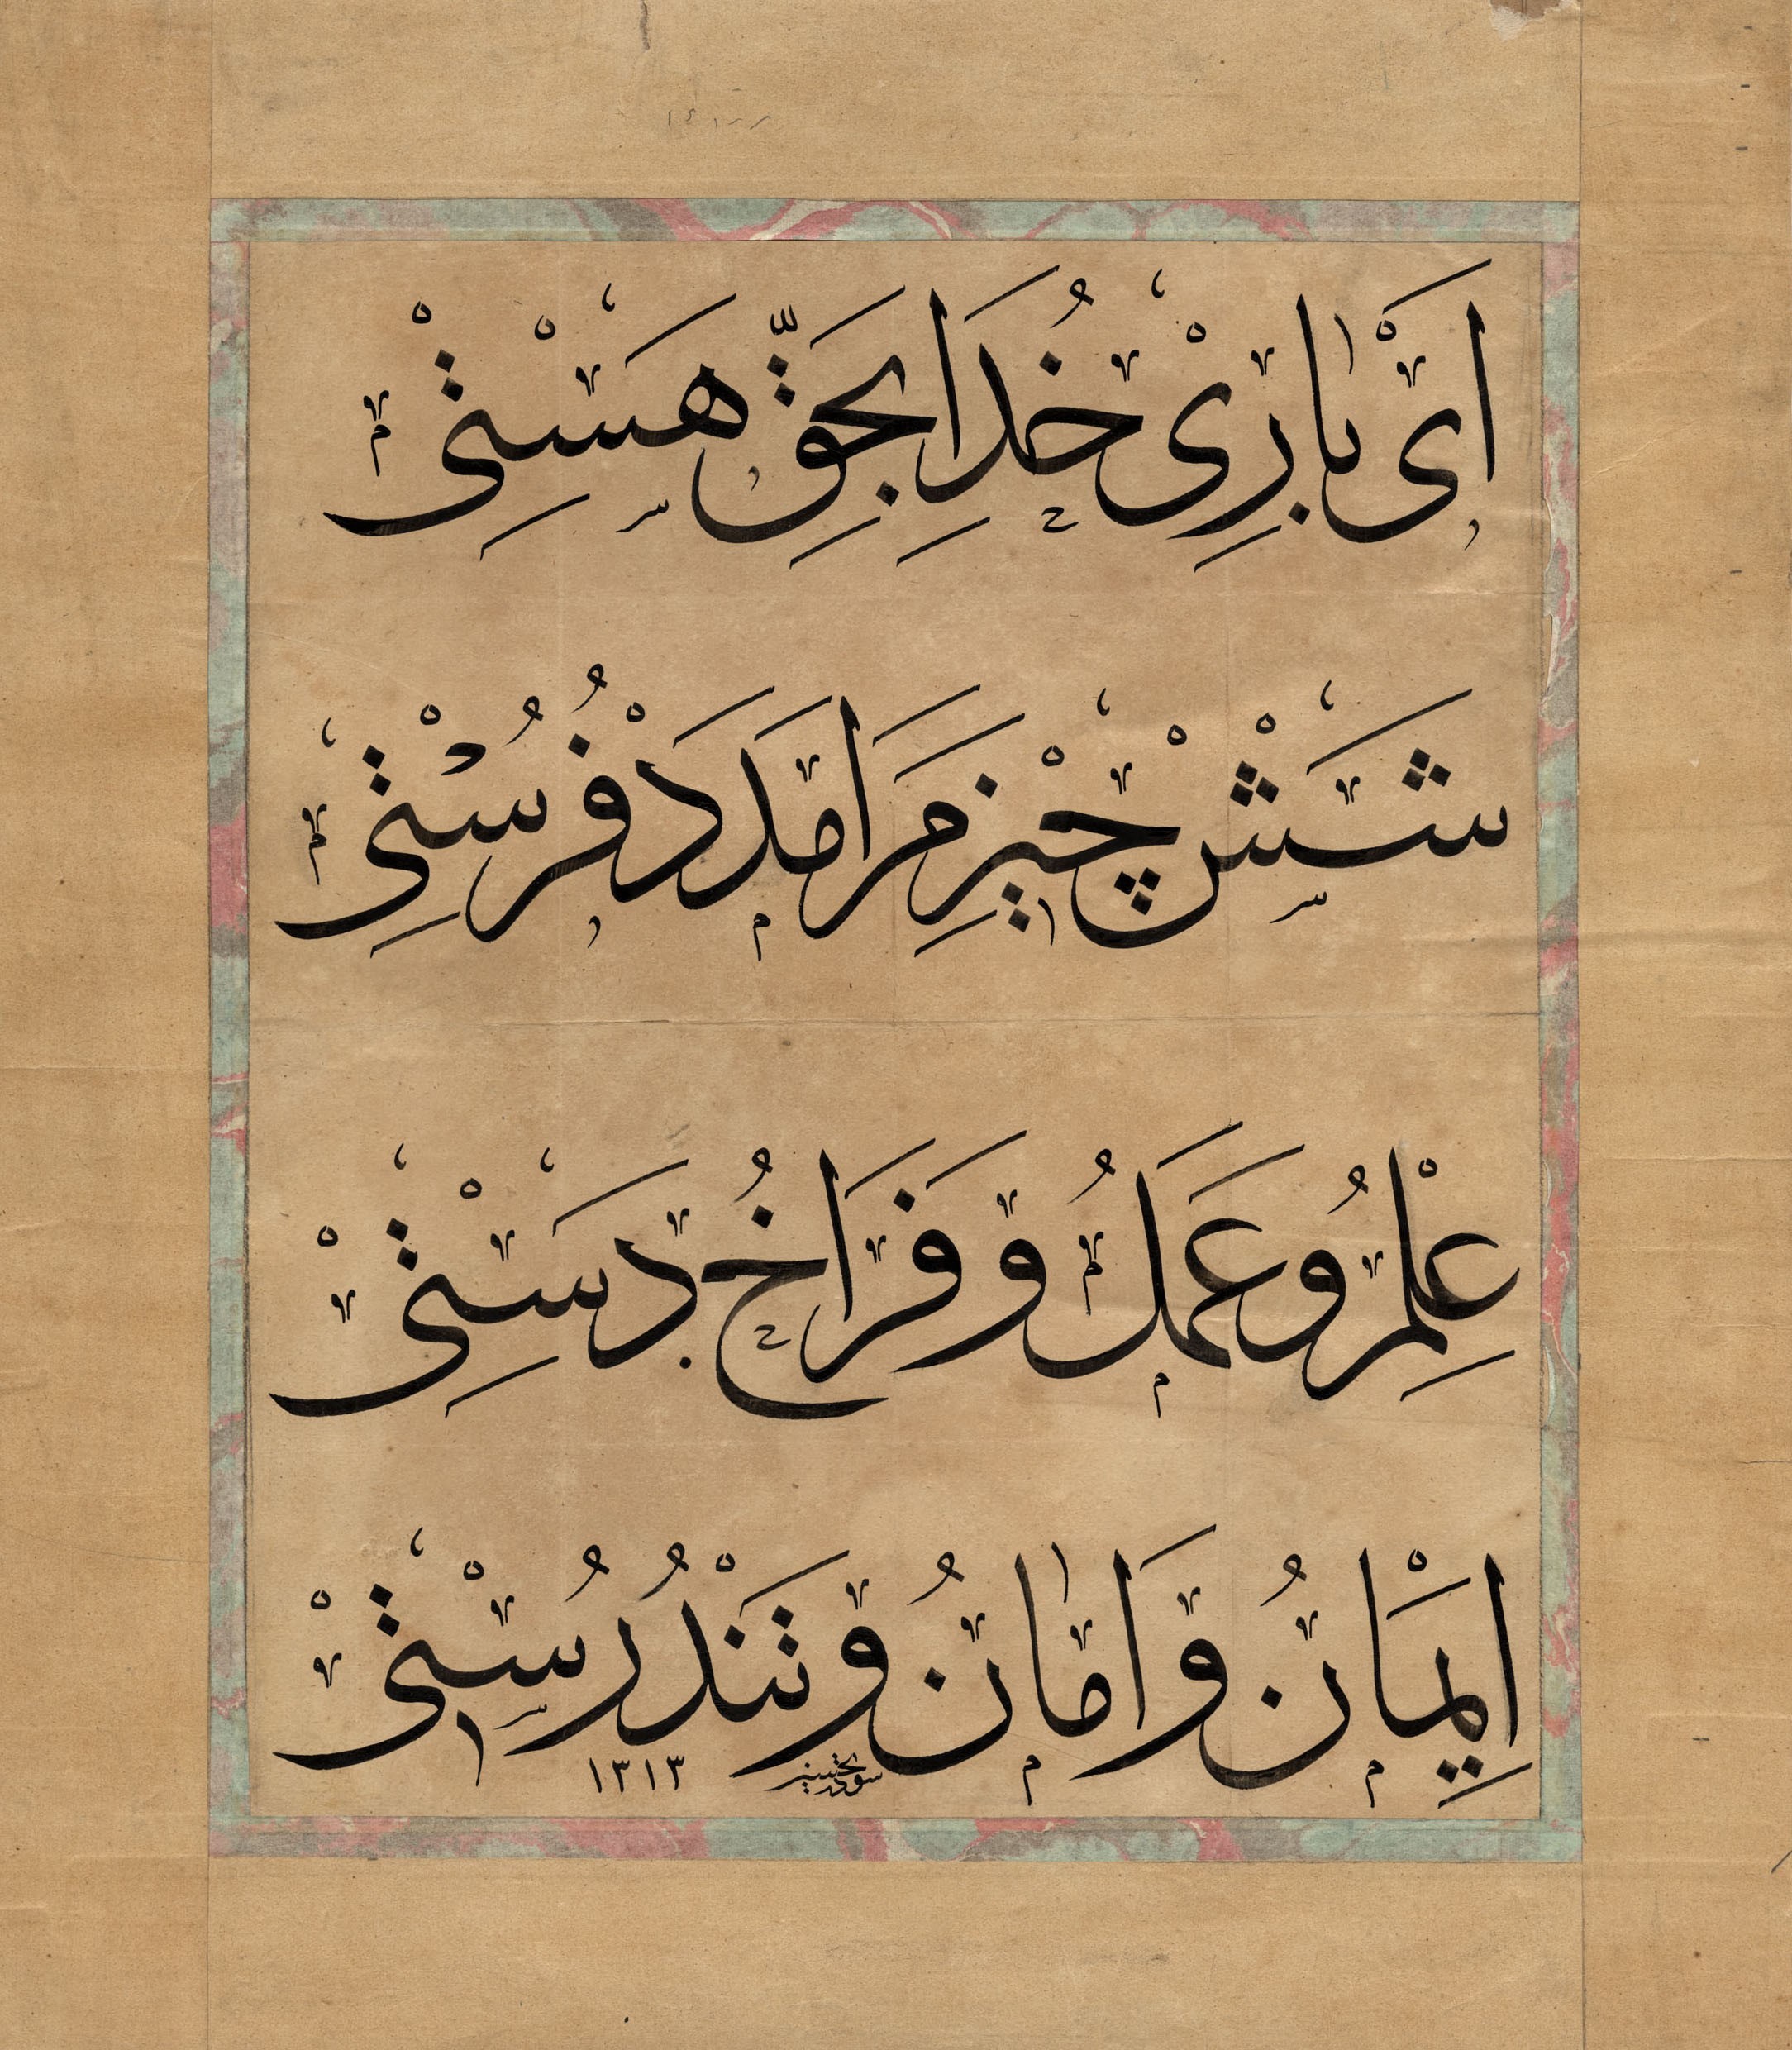 اَیْ بارِیْ خُدَا بِحَقِّ هَسْتِیْ
شَشْ چِیْزِ مَرَا مَدَدْ فُرُسْتِی
عِلْمُ وَعَمَلُ وَفَرَاخُ دَسْتِیْ
اِیمَانُ وَاَمانُ وَتَنْدُرُسْتِیْ
١٣١٣